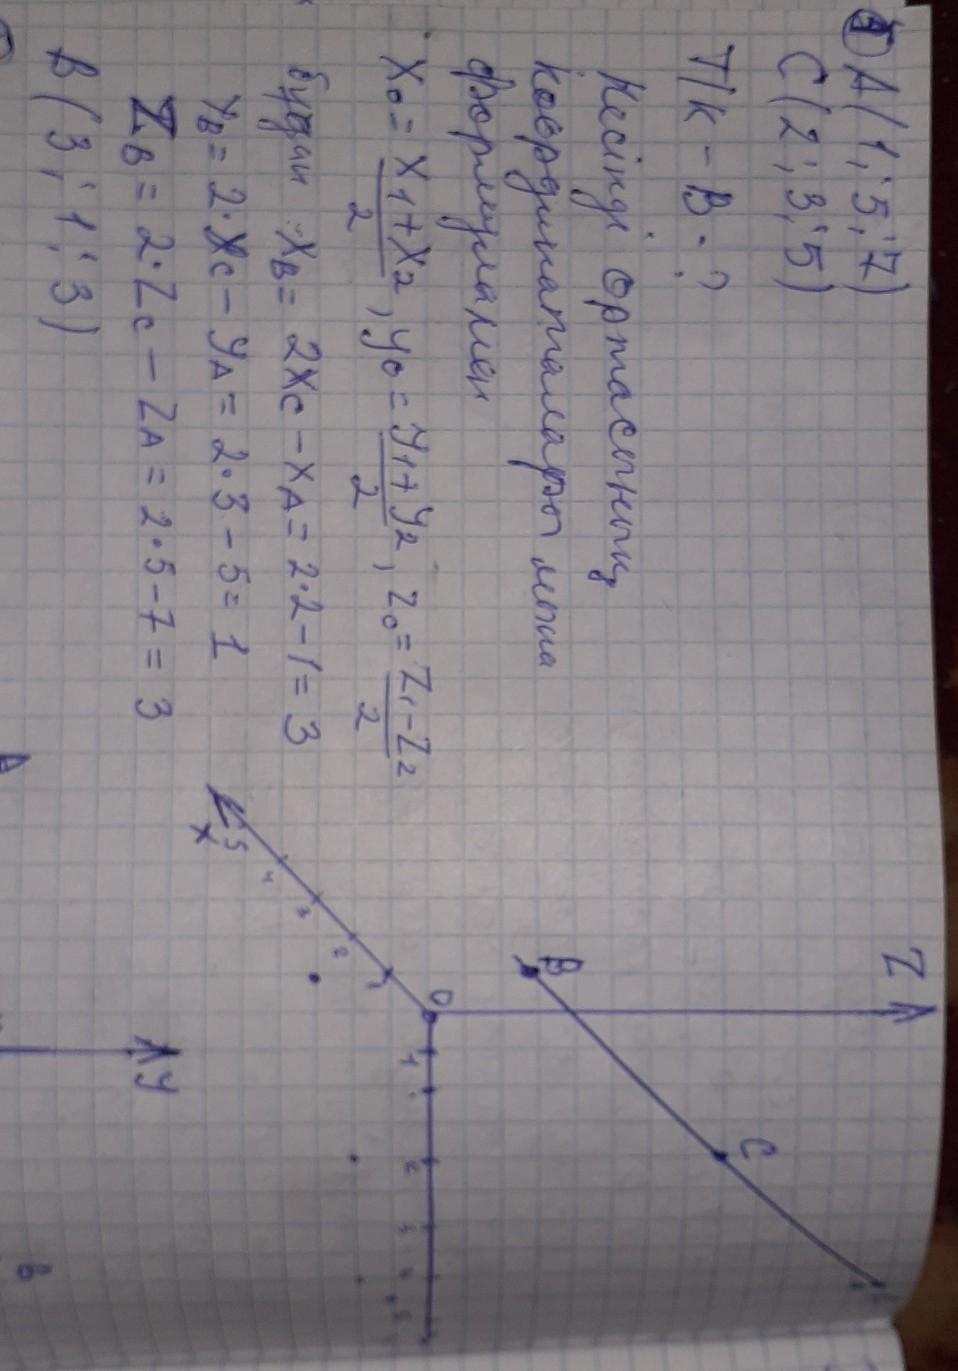 ① A(1; 5; 7)
C(2; 3; 5)
Т/к - B - ?
Кесінді ортасының
координаталары мына
формуламен
X₀ = X₁+X₂/2, y₀ = y₁+y₂/2, Z₀ = Z₁-Z₂/2
бұдан X_B = 2X_C - X_A = 2·2-1 = 3
Y_B = 2·X_C - y_A = 2·3-5 = 1
Z_B = 2·Z_C - Z_A = 2·5-7 = 3
B(3; 1; 3)
Z
B
C
0
1 2 3 4 5
1
2
3
4
5
X
y
A
B